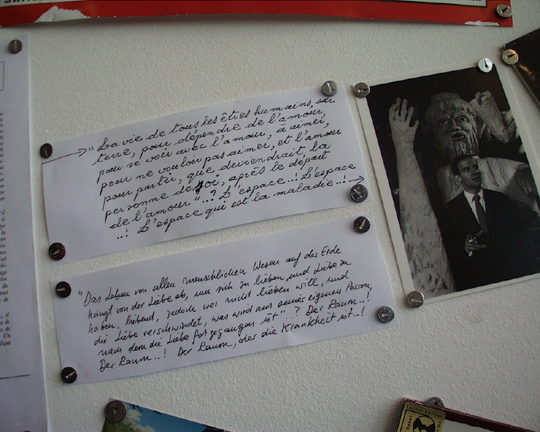 "La vie de tous les êtres humains, sur
terre, pour dépendre de l'amour,
pour se voir avec l'amour, à aimer,
pour me vouloir pas aimer, et l'amour
pour partir, que deviendrait, la
personne de soi, après le départ
de l'amour"...? L'espace..! L'espace
..! L'espace qui est la maladie...!
"Das Leben von allen menschlichen Wesen auf der Erde
hängt von der Liebe ab, um sich zu lieben, und Liebe zu
haben, liebend, jedoch wer nicht lieben will, und
die Liebe verschwindet, was wird aus eigenen Person,
nach dem die Liebe fortgegangen ist"? Der Raum..!
Der Raum..! Der Raum, der die Krankheit ist..!